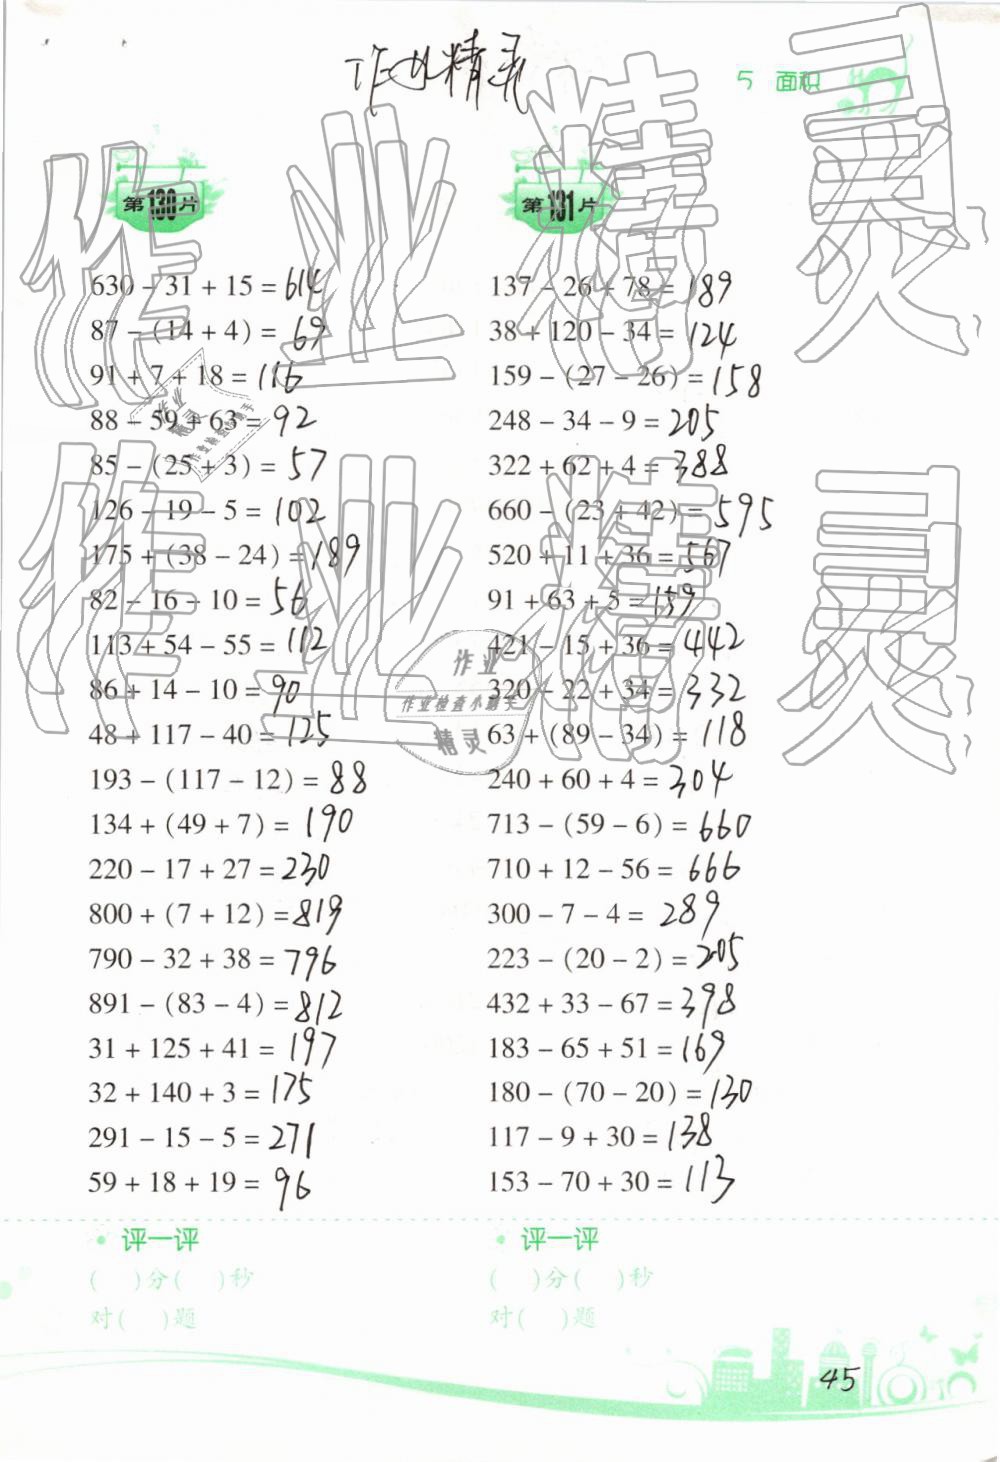 作业精灵
5 面积
第130片
630 - 31 + 15 = 614
87 - (14 + 4) = 69
91 + 7 + 18 = 116
88 - 59 + 63 = 92
85 - (25 + 3) = 57
126 - 19 - 5 = 102
175 + (38 - 24) = 189
82 - 16 - 10 = 56
113 + 54 - 55 = 112
86 + 14 - 10 = 90
48 + 117 - 40 = 125
193 - (117 - 12) = 88
134 + (49 + 7) = 190
220 - 17 + 27 = 230
800 + (7 + 12) = 819
790 - 32 + 38 = 796
891 - (83 - 4) = 812
31 + 125 + 41 = 197
32 + 140 + 3 = 175
291 - 15 - 5 = 271
59 + 18 + 19 = 96
评一评
( )分( )秒
对( )题
第131片
137 - 26 + 78 = 189
38 + 120 - 34 = 124
159 - (27 - 26) = 158
248 - 34 - 9 = 205
322 + 62 + 4 = 388
660 - (23 + 42) = 595
520 + 11 + 36 = 567
91 + 63 + 5 = 159
421 - 15 + 36 = 442
320 - 22 + 34 = 332
63 + (89 - 34) = 118
240 + 60 + 4 = 304
713 - (59 - 6) = 660
710 + 12 - 56 = 666
300 - 7 - 4 = 289
223 - (20 - 2) = 205
432 + 33 - 67 = 398
183 - 65 + 51 = 169
180 - (70 - 20) = 130
117 - 9 + 30 = 138
153 - 70 + 30 = 113
评一评
( )分( )秒
对( )题
作业精灵
作业精灵
作业
精灵
作业检查小助手
作业
作业检查小助手
精灵
45